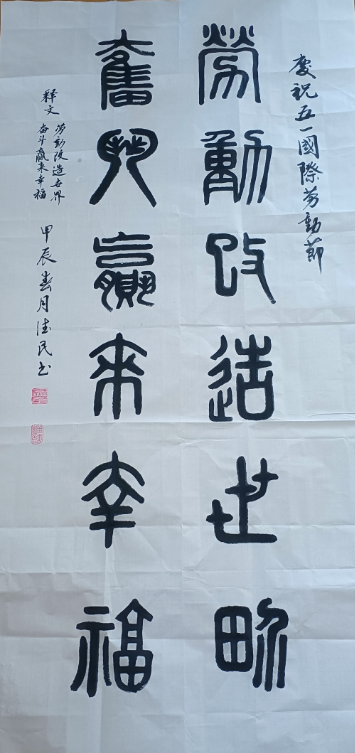 慶祝五一國際勞動節
勞動改造世界
奮鬥贏來幸福
释文 劳动改造世界
奋斗赢来幸福
甲辰春月佳民书